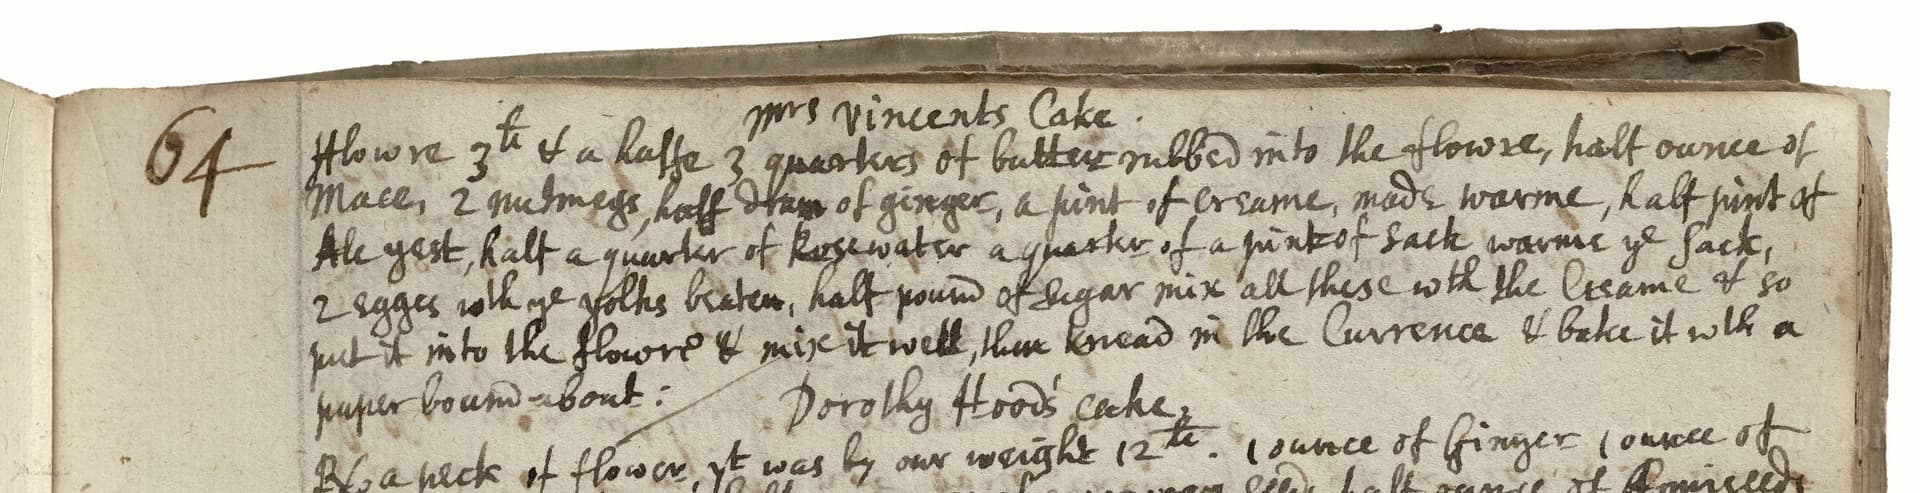 Mrs Vincents Cake.
64
fflowre 3li & a halfe 3 quarters of butter rubbed into the flowre, half ounce of
Mace, 2 nutmegs, half dram of ginger, a pint of creame, made warme, half pint of
Ale yest, half a quarter of Rosewater a quarter of a pint of sack warme ye sack,
2 egges wth ye yolks beaten, half pound of Sugar mix all these wth the Creame & so
put it into the flowre & mix it well, then knead in the Currence & bake it wth a
paper bound about:
Dorothy Hoods cake,
a peck of flower, yt was by our weight 12li. 1 ounce of Ginger 1 ounce of
seeds, half ounce of Anniseeds